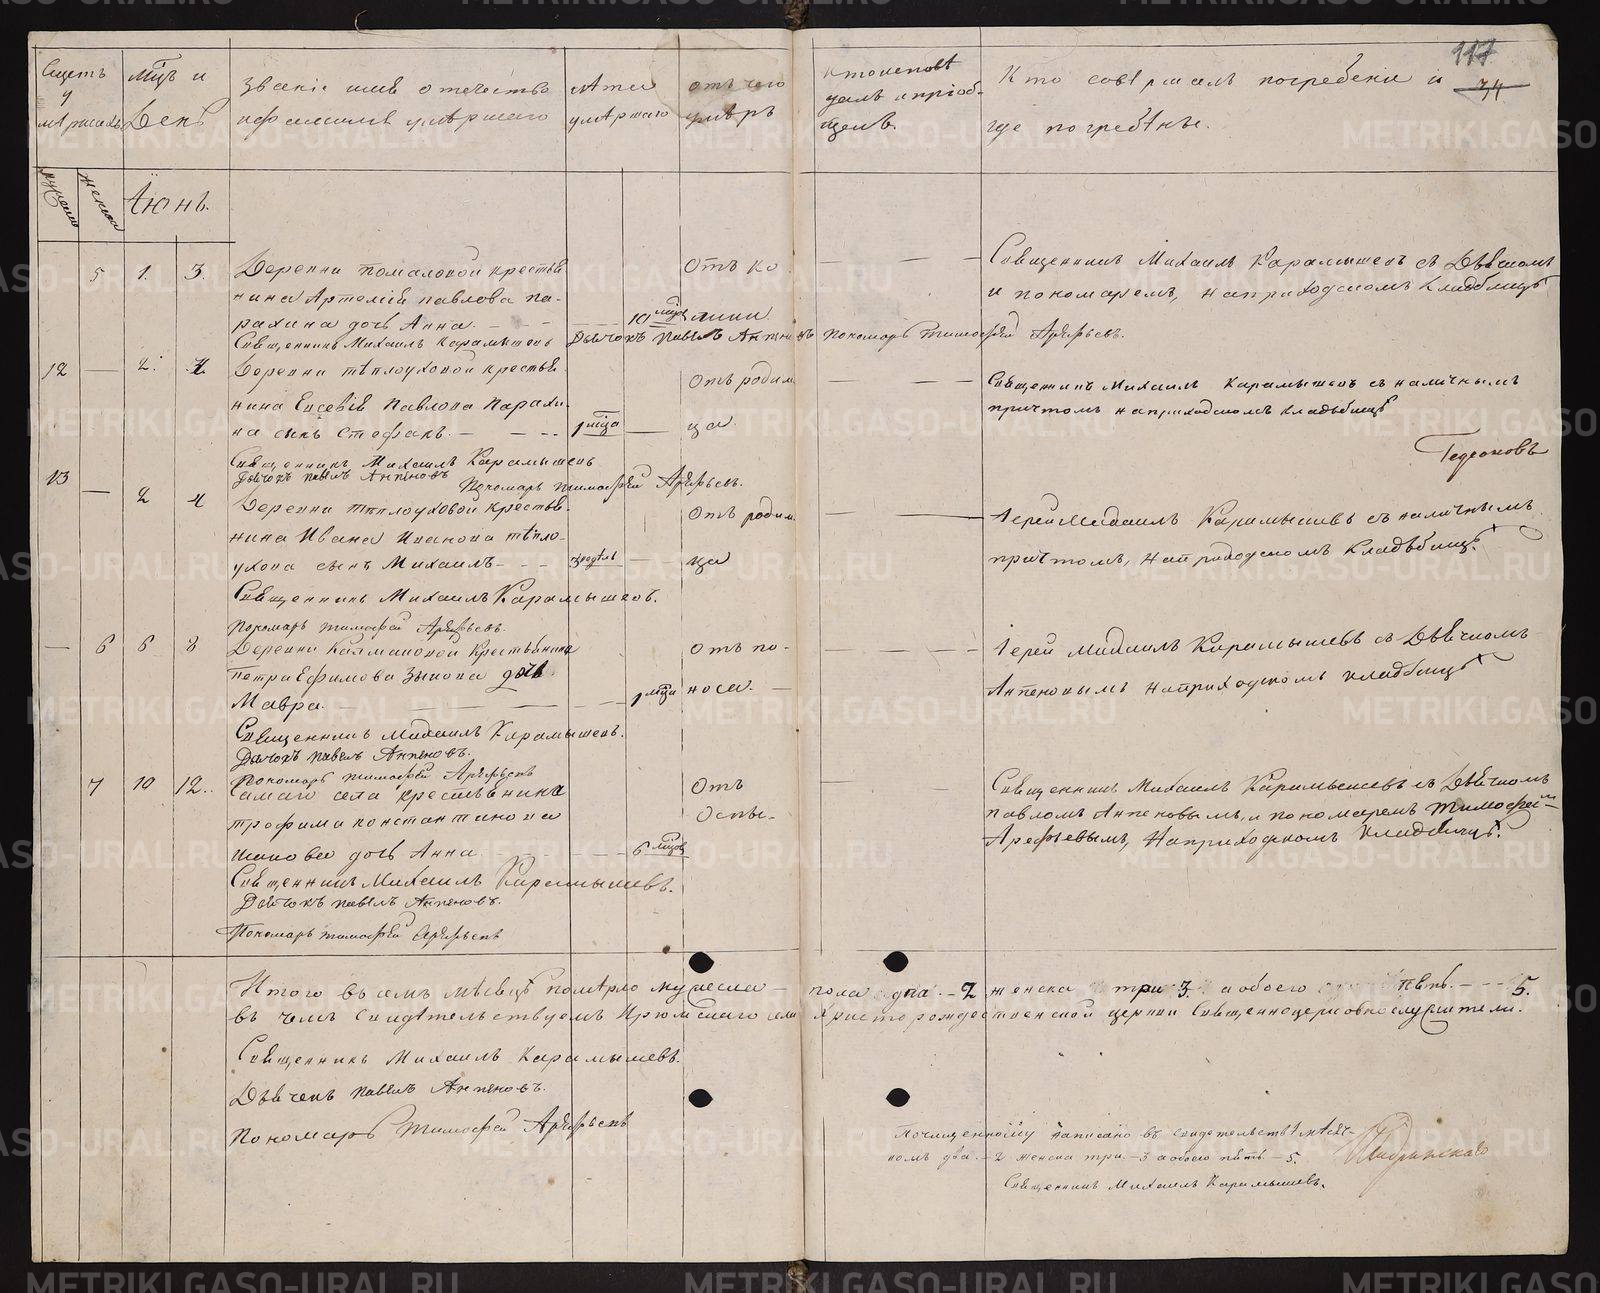 117
34
Счетъ умершихъ
мц҃ъ и День
Званіе имя отечество и фамилія умершаго
лѣта умершаго
отъ чего умеръ
кто исповѣдалъ и пріобщилъ.
Кто совершалъ погребеніе и где погребены.
мужеска
женска
Іюнь.
5 1. 3. Деревни Помаловой крестья- Отъ ко- Священникъ Михаилъ Карамышевъ съ Дьячкомъ
нина Артемія Павлова Па- и пономаремъ, на приходскомъ кладбищѣ
рахина дочь Анна. 10 мцовъ
Священникъ Михаилъ Карамышевъ Дьячокъ Павелъ Пономарь Тимофей Арефьевъ.
12 — 2. 4. Деревни Теплоуховой крестья- Отъ родим- Священникъ Михаилъ Карамышевъ съ наличнымъ
нина Евсевія Павлова Парахи- причтомъ на приходскомъ кладбищѣ
на сынъ Стефанъ. 1 мца ца.
Священникъ Михаилъ Карамышевъ
Дьячокъ Павелъ Пономарь Тимофей Арефьевъ.
13 — 2 4 Деревни Теплоуховой крестья- Отъ родим- Іерей Михаилъ Карамышевъ съ наличнымъ
нина Ивана Иванова Тепло- причтомъ, на приходскомъ кладбищѣ.
ухова сынъ Михаилъ 3 недѣль ца
Священникъ Михаилъ Карамышевъ.
Пономарь Тимофей Арефьевъ.
— 6 6 8 Деревни Калмаковой крестьянина Отъ по- Іерей Михаилъ Карамышевъ съ Дьячкомъ
Петра Ефимова Зыкова дочь на приходскомъ кладбищѣ
Мавра. 1 мца носа.
Священникъ Михаилъ Карамышевъ.
Дьячокъ Павелъ
Пономарь Тимофей Арефьевъ
7 10 12. Самаго села крестьянина Отъ Священникъ Михаилъ Карамышевъ съ Дьячкомъ
Трофима Константинова Оспы. Павломъ и пономаремъ Тимофеемъ
дочь Анна 6 мцовъ Арефьевымъ, на приходскомъ кладбищѣ.
Священникъ Михаилъ Карамышевъ.
Дьячокъ Павелъ
Пономарь Тимофей Арефьевъ
Итого въ семъ мѣсяцѣ померло мужеска пола два. — 2 женска три 3. а обоего пять. — 5.
въ чемъ свидѣтельствуемъ села Христорождественской церкви Священноцерковнослужители.
Священникъ Михаилъ Карамышевъ.
Дьячекъ Павелъ
Пономарь Тимофей Арефьевъ
По чищенному написано въ свидетельствѣ
два. — 2 женска три. — 3 а обоего пять. — 5.
Священникъ Михаилъ Карамышевъ.
METRIKI.GASO-URAL.RU